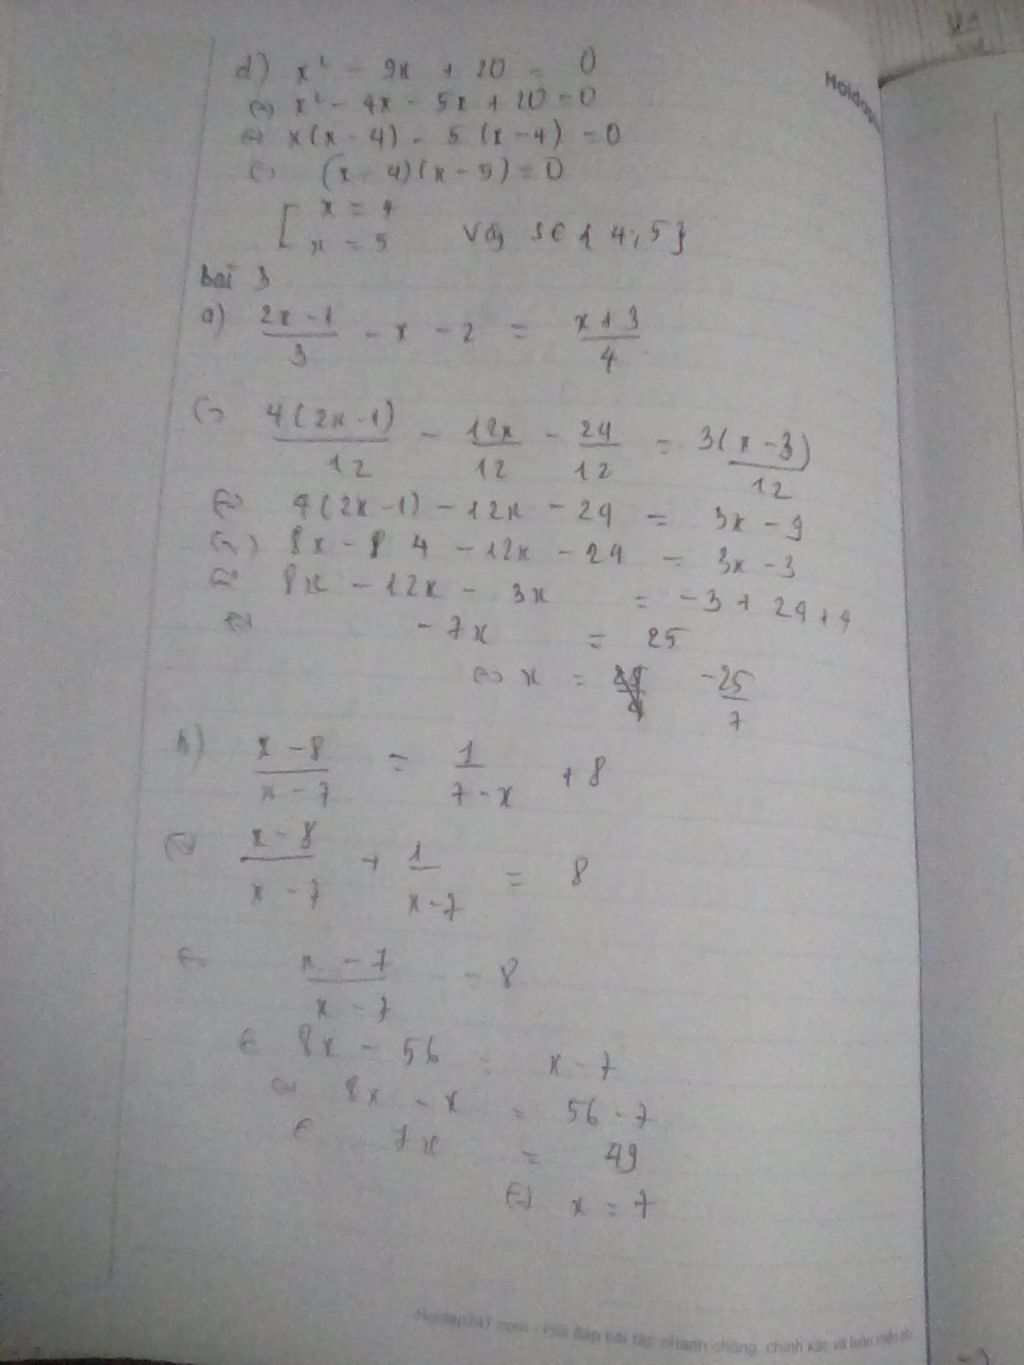 d) x² - 9x + 20 = 0
(=) x² - 4x - 5x + 20 = 0
(=) x(x - 4) - 5 (x - 4) = 0
(=) (x - 4)(x - 5) = 0
[ x = 4
x = 5 Vậy S ∈ { 4; 5 }
Bài 3
a) (2x - 1)/3 - x - 2 = (x + 3)/4
(=) 4(2x - 1)/12 - 12x/12 - 24/12 = 3(x - 3)/12
(=) 4(2x - 1) - 12x - 24 = 3x - 9
(=) 8x - 8 4 - 12x - 24 = 3x - 3
(=) 8x - 12x - 3x = -3 + 24 + 4
(=) - 7x = 25
(=) x = -25/7
b) (x - 8)/(x - 7) = 1/(7 - x) + 8
(=) (x - 8)/(x - 7) + 1/(x - 7) = 8
(=) (x - 7)/(x - 7) = 8
(=) 8x - 56 = x - 7
(=) 8x - x = 56 - 7
(=) 7x = 49
(=) x = 7
Hoidap247.com - Hỏi đáp bài tập nhanh chóng, chính xác và luôn miễn phí